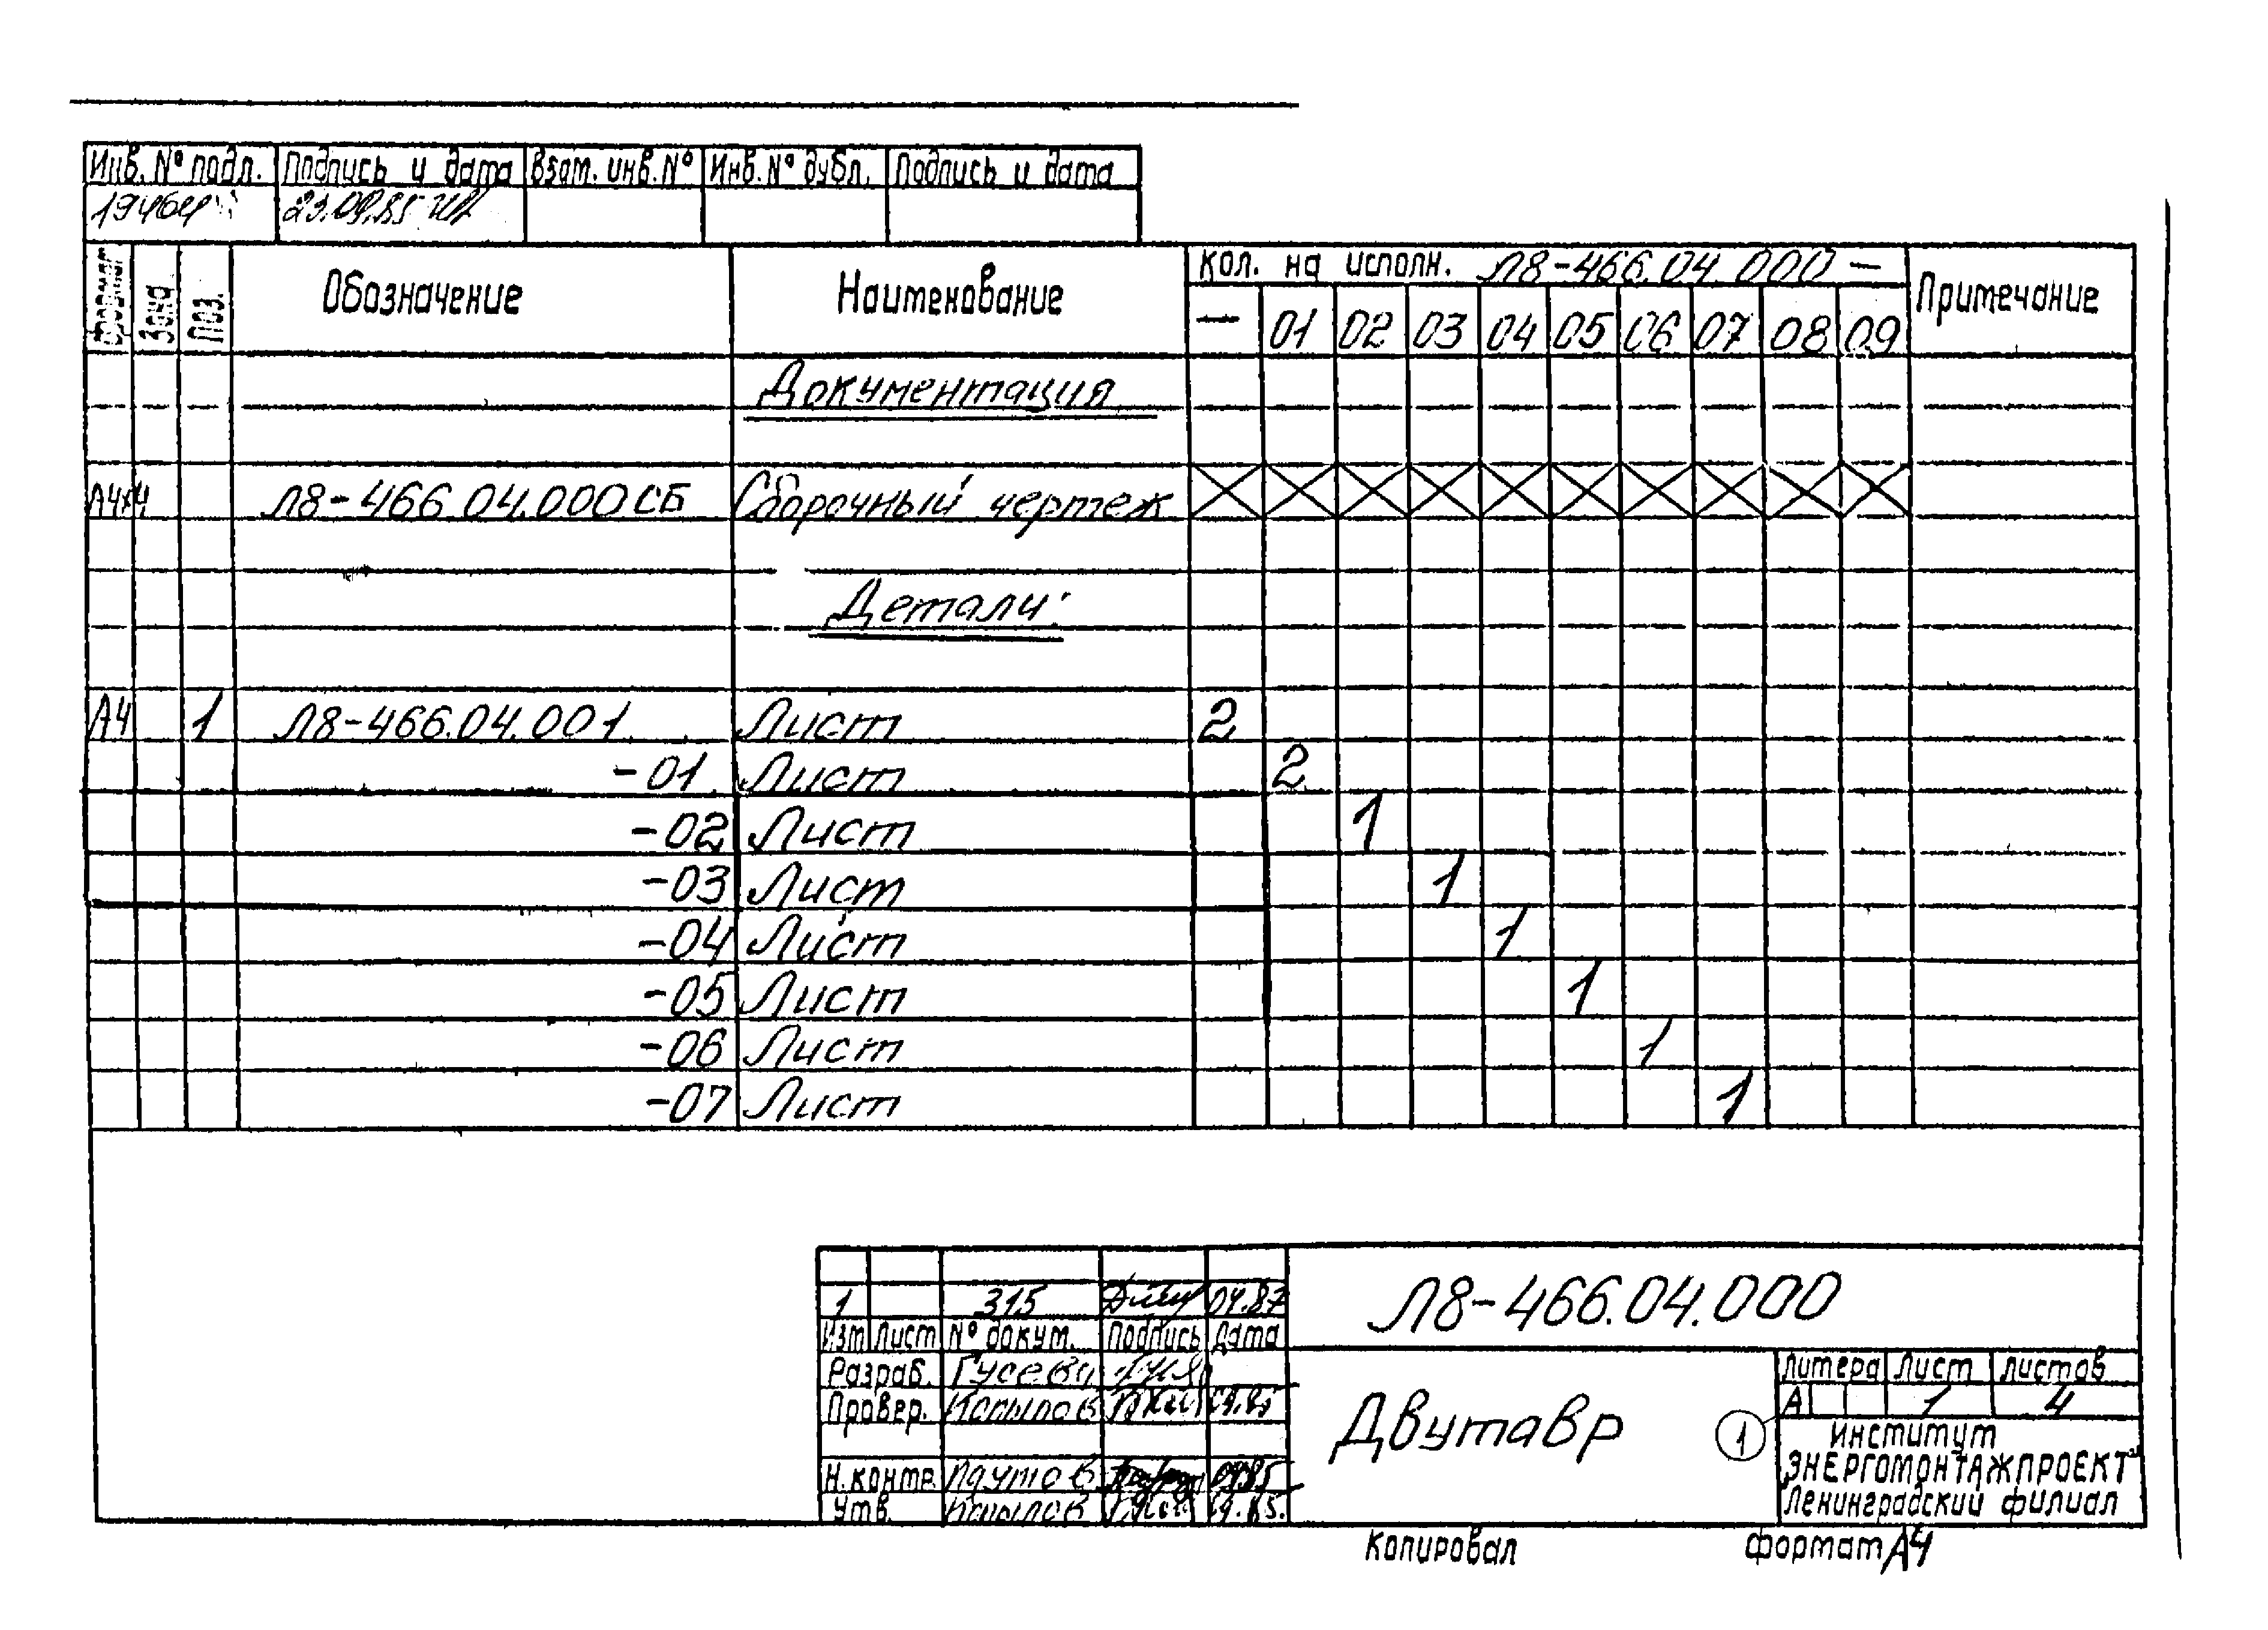 Инв. № подл. Подпись и дата Взам. инв. № Инв. № дубл. Подпись и дата
19464 23.09.85
Формат Зона Поз. Обозначение Наименование Кол. на исполн. Л8-466.04.000 — Примечание
— 01 02 03 04 05 06 07 08 09
Документация
А4х4 Л8-466.04.000СБ Сборочный чертеж
Детали
А4 1 Л8-466.04.001 Лист 2
-01 Лист 2
-02 Лист 1
-03 Лист 1
-04 Лист 1
-05 Лист 1
-06 Лист 1
-07 Лист 1
1 315 04.87
Изм Лист № докум. Подпись Дата
Л8-466.04.000
Разраб. Гусева
Провер. Копылов 09.85
Н.контр. Паутов 09.85
Утв. Копылов 09.85.
Двутавр
1
Литера Лист Листов
А 1 4
Институт
ЭНЕРГОМОНТАЖПРОЕКТ
Ленинградский филиал
Копировал Формат А4